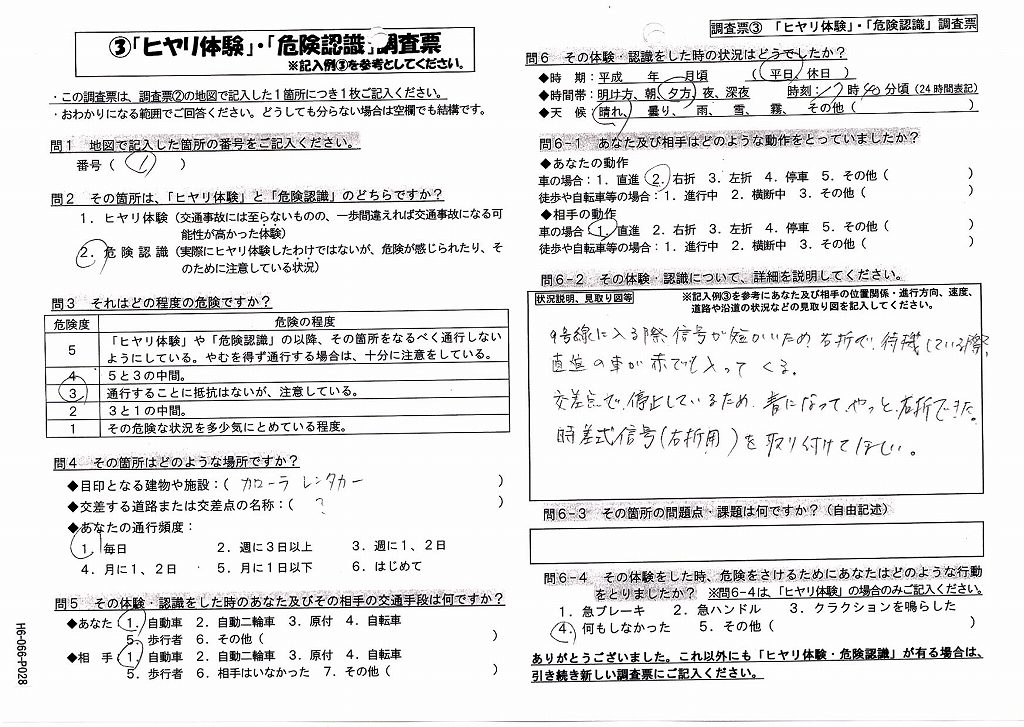 ③「ヒヤリ体験」・「危険認識」調査票
※記入例③を参考としてください。
・この調査票は、調査票②の地図で記入した1箇所につき1枚ご記入ください。
・おわかりになる範囲でご回答ください。どうしても分らない場合は空欄でも結構です。
問1 地図で記入した箇所の番号をご記入ください。
番号( 1 )
問2 その箇所は、「ヒヤリ体験」と「危険認識」のどちらですか?
1.ヒヤリ体験(交通事故には至らないものの、一歩間違えれば交通事故になる可
能性が高かった体験)
2.危険認識(実際にヒヤリ体験したわけではないが、危険が感じられたり、そ
のために注意している状況)
問3 それはどの程度の危険ですか?
危険度 危険の程度
5 「ヒヤリ体験」や「危険認識」の以降、その箇所をなるべく通行しない
ようにしている。やむを得ず通行する場合は、十分に注意をしている。
4 5と3の中間。
3 通行することに抵抗はないが、注意している。
2 3と1の中間。
1 その危険な状況を多少気にとめている程度。
問4 その箇所はどのような場所ですか?
◆目印となる建物や施設:( カローラ レンタカー )
◆交差する道路または交差点の名称:( ? )
◆あなたの通行頻度:
1.毎日 2.週に3日以上 3.週に1、2日
4.月に1、2日 5.月に1日以下 6.はじめて
問5 その体験・認識をした時のあなた及びその相手の交通手段は何ですか?
◆あなた 1.自動車 2.自動二輪車 3.原付 4.自転車
5.歩行者 6.その他( )
◆相 手 1.自動車 2.自動二輪車 3.原付 4.自転車
5.歩行者 6.相手はいなかった 7.その他( )
H6-066-P028
調査票③ 「ヒヤリ体験」・「危険認識」 調査票
問6 その体験・認識をした時の状況はどうでしたか?
◆時 期:平成 年 月頃 ( 平日、休日 )
◆時間帯:明け方、朝、夕方、夜、深夜 時刻:17時40分頃(24時間表記)
◆天 候:晴れ、曇り、雨、雪、霧、その他( )
問6-1 あなた及び相手はどのような動作をとっていましたか?
◆あなたの動作
車の場合:1.直進 2.右折 3.左折 4.停車 5.その他( )
徒歩や自転車等の場合:1.進行中 2.横断中 3.その他( )
◆相手の動作
車の場合:1.直進 2.右折 3.左折 4.停車 5.その他( )
徒歩や自転車等の場合:1.進行中 2.横断中 3.その他( )
問6-2 その体験・認識について、詳細を説明してください。
状況説明、見取り図等 ※記入例③を参考にあなた及び相手の位置関係・進行方向、速度、
道路や沿道の状況などの見取り図を記入してください。
9号線に入る際、信号が短かいため、右折で、待機している際、
直進の車が赤でも入ってくる。
交差点で、停止しているため、青になって、やっと、右折できた。
時差式信号(右折用)を取り付けてほしい。
問6-3 その箇所の問題点・課題は何ですか?(自由記述)
問6-4 その体験をした時、危険をさけるためにあなたはどのような行動
をとりましたか? ※問6-4は、「ヒヤリ体験」の場合のみご記入ください。
1.急ブレーキ 2.急ハンドル 3.クラクションを鳴らした
4.何もしなかった 5.その他( )
ありがとうございました。これ以外にも「ヒヤリ体験・危険認識」が有る場合は、
引き続き新しい調査票にご記入ください。